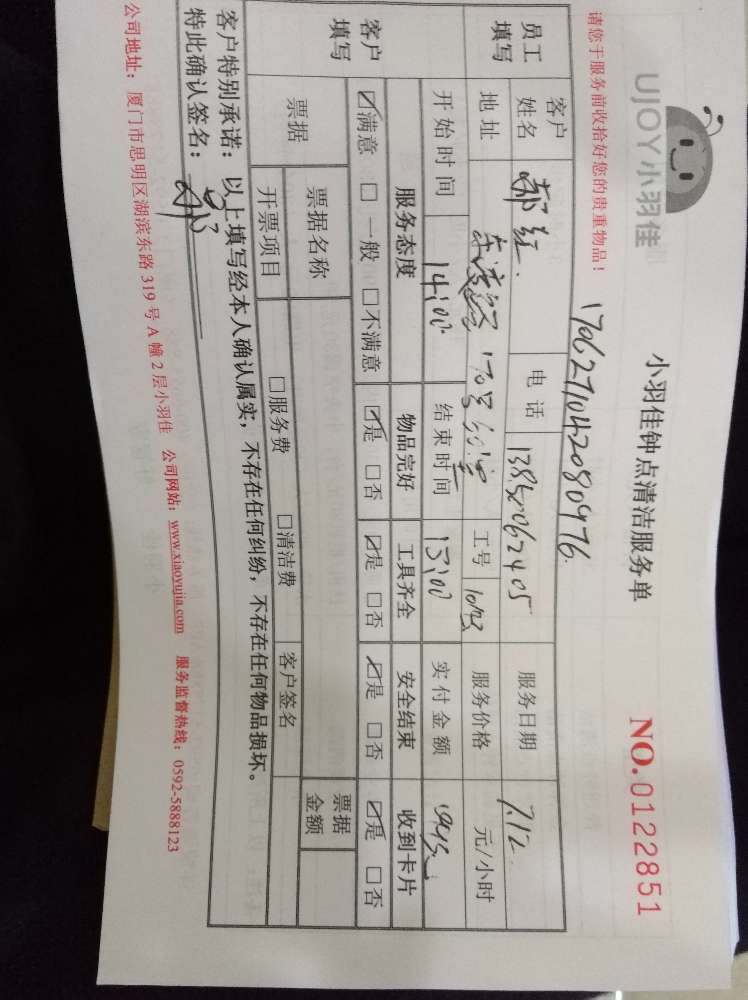 UJOY小羽佳
小羽佳钟点清洁服务单
NO.0122851
请您于服务前收拾好您的贵重物品！
1706271042080976
员工填写
客户姓名 郝红 电话 13850062405 服务日期 7.12
地址 170号 工号 服务价格 元/小时
开始时间 14:00 结束时间 15:00 实付金额
客户填写
服务态度 物品完好 工具齐全 安全结束 收到卡片
☑满意 □一般 □不满意 ☑是 □否 ☑是 □否 ☑是 □否 ☑是 □否
票据 票据名称 票据金额
开票项目 □服务费 □清洁费 客户签名
客户特别承诺：以上填写经本人确认属实，不存在任何纠纷，不存在任何物品损坏。
特此确认签名：
公司地址：厦门市思明区湖滨东路 319 号 A 幢 2 层小羽佳 公司网站：www.xiaoyujia.com 服务监督热线：0592-5888123